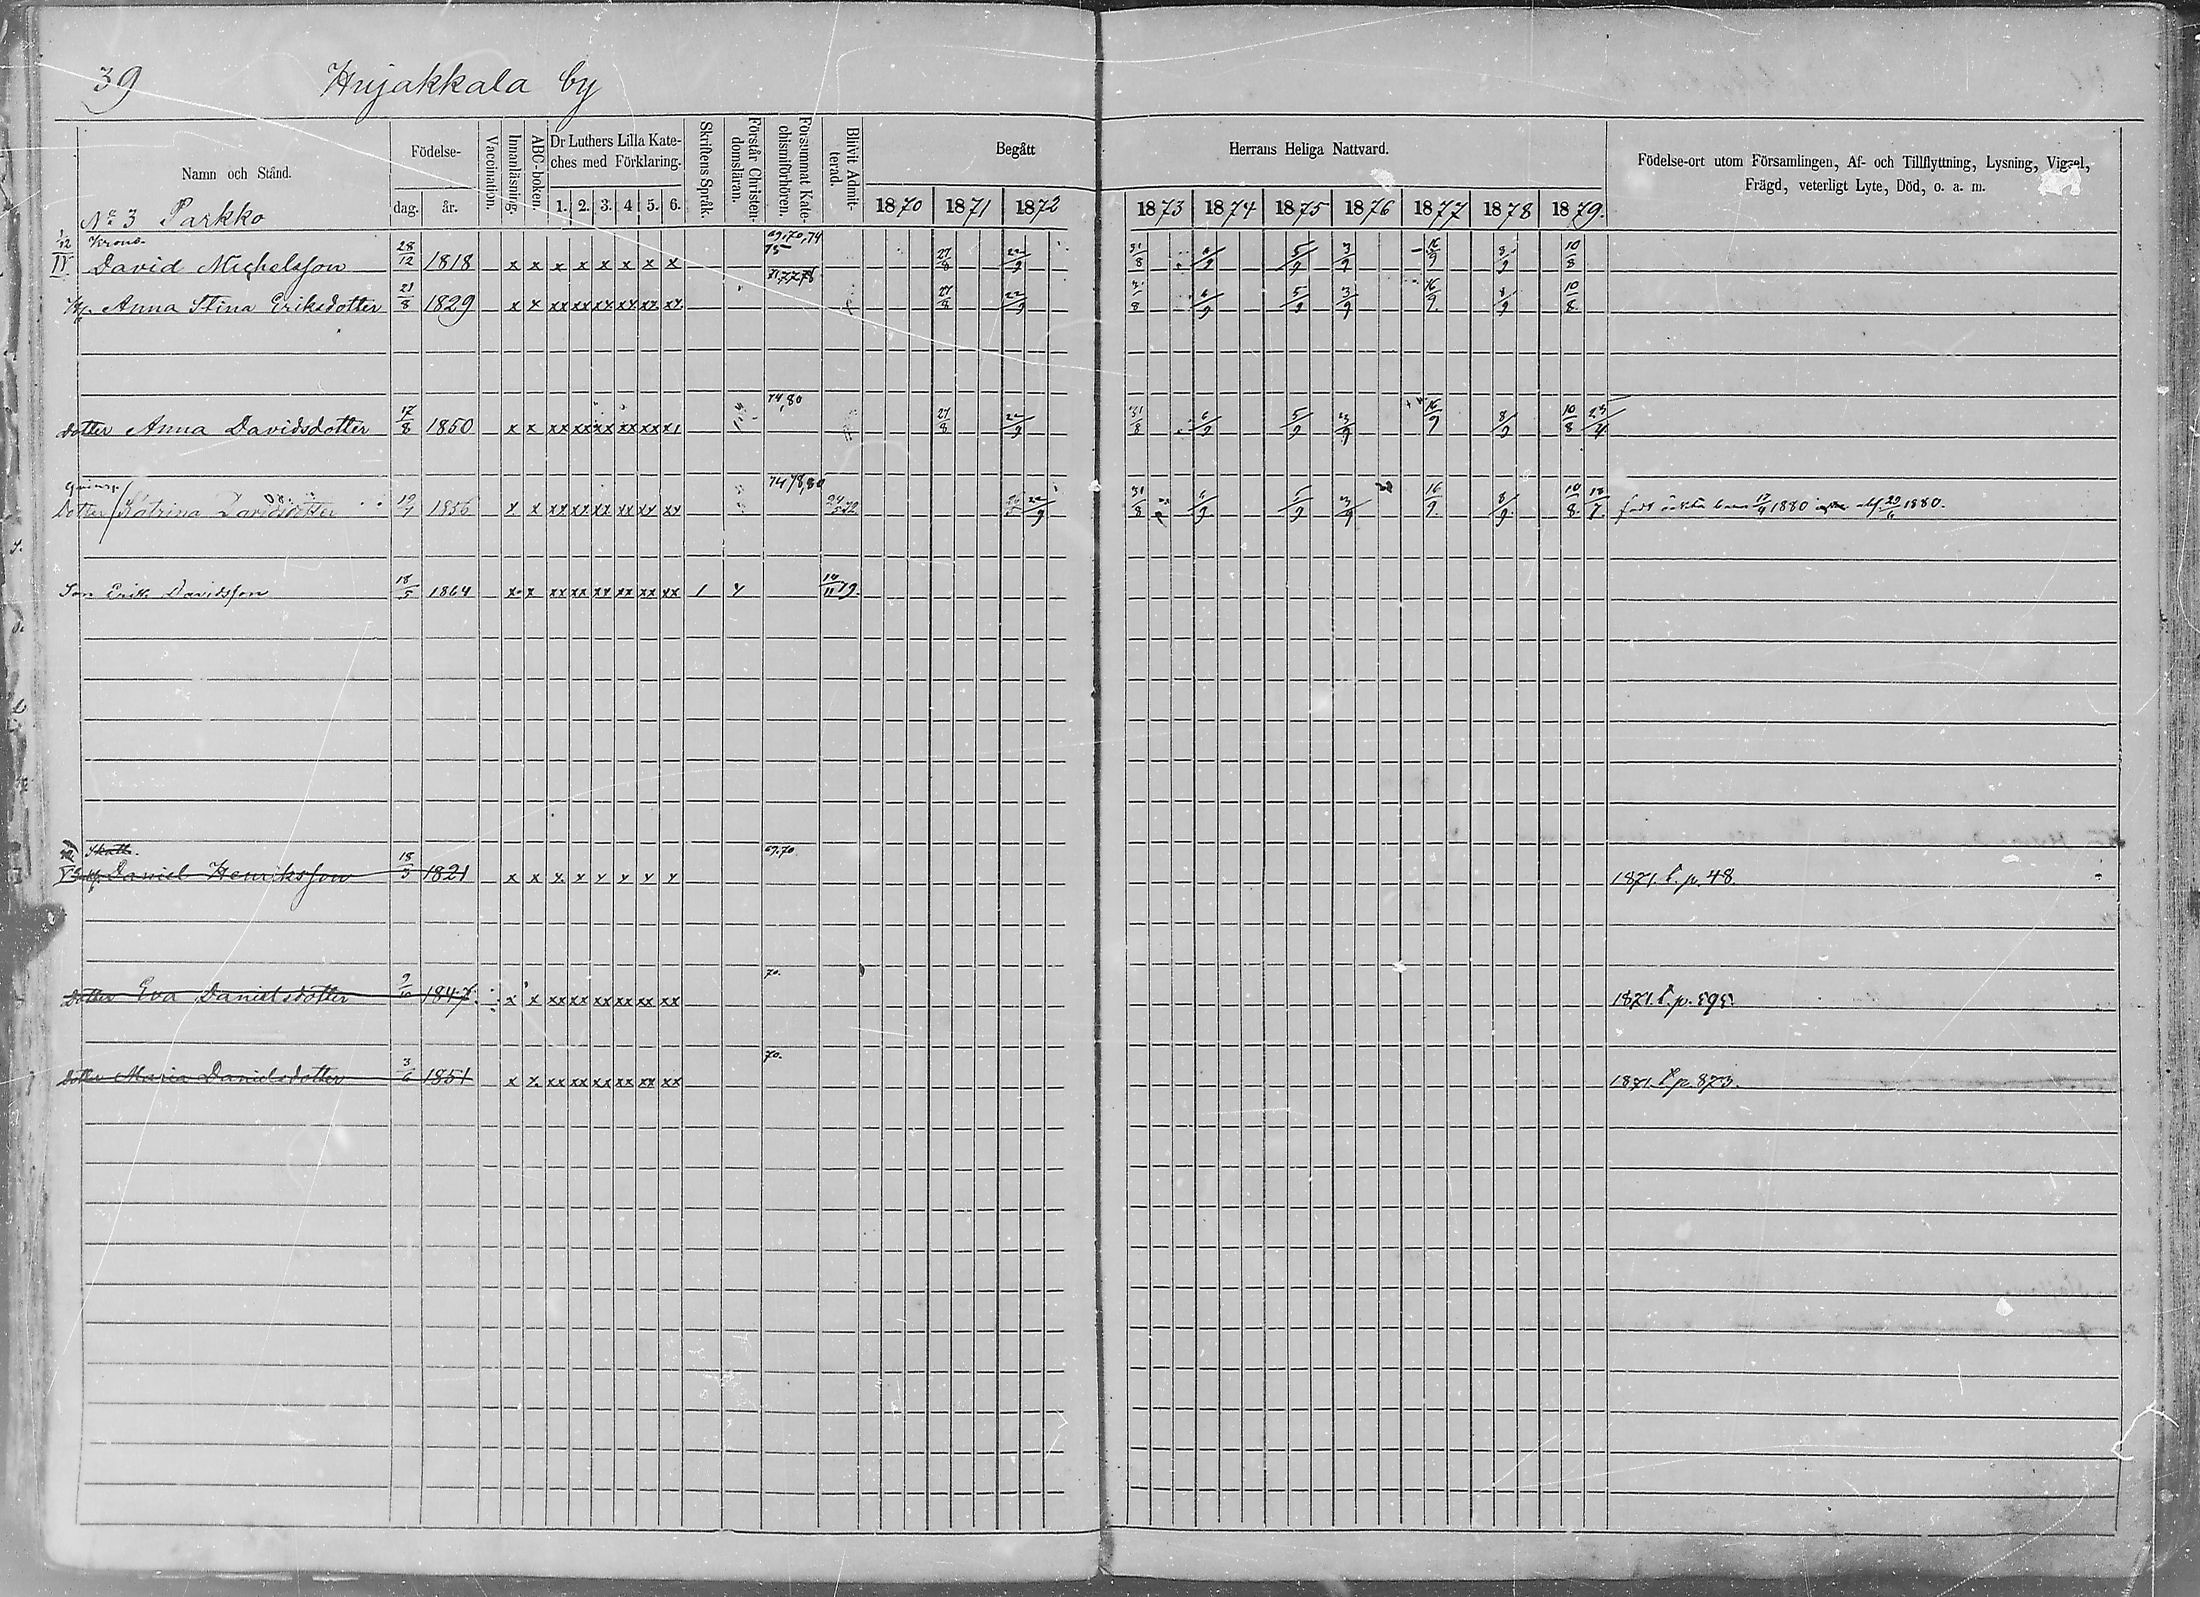 39 Hujakkala by
Namn och Stånd.
Födelse-
dag. år.
Vaccination.
Innanläsning.
ABC-boken.
Dr Luthers Lilla Kate-
ches med Förklaring.
1. 2. 3. 4 5. 6.
Skriftens Språk.
Förstår Christen-
domsläran.
Försummat Kate-
chismiförhören.
Blivit Admit-
terad.
Begått Herrans Heliga Nattvard.
1870 1871 1872 1873 1874 1875 1876 1877 1878 1879.
Födelse-ort utom Församlingen, Af- och Tillflyttning, Lysning, Vigsel,
Frägd, veterligt Lyte, Död, o. a. m.
No 3 Parkko
1/12 Krono. 69,70,74
IV David Michelsson 28/12 1818 x x x x x x x x 75 27/8 22/9 31/8 6/9 5/9 3/9 16/9 8/9 10/8
Anna Stina Eriksdotter 21/8 1829 x x xx xx xx xx xx xx 27/8 22/9 31/8 6/9 5/9 3/9 16/9 8/9 10/8
74,80
dotter Anna Davidsdotter 17/8 1850 x x xx xx xx xx xx x1 27/8 22/9 31/8 6/9 5/9 3/9 16/9 8/9 10/8 23/4
74 78,80
Dotter Katrina Davidsdotter 1856 x x xx xx xx xx xx xx 22/9 31/8 6/9 5/9 3/9 16/9 8/9 10/8 18/7 1880 1880.
Son Erik Davidsson 18/5 1864 x x xx xx xx xx xx xx 1 x 10/11 79.
Skatte. 69.70
Daniel Henriksson 18/3 1821 x x x x x x x x 1871. t. p. 48.
70.
dotter Eva Danielsdotter 1847. x x xx xx xx xx xx xx 1871. t. p. 595.
70.
dotter Maria Danielsdotter 3/6 1851 x x xx xx xx xx xx xx 1871. t. p. 873.